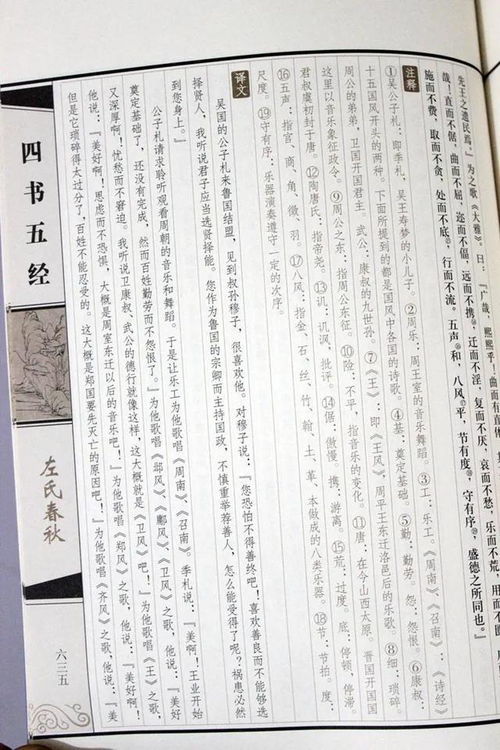 先王之遗民焉。”为之歌《大雅》,曰:“广哉,熙熙乎!曲而有直体
哉!直而不倨,曲而不屈,迩而不偪,远而不携,迁而不淫,复而不厌,哀而不愁,乐而不荒,用而不
施而不费,取而不贪,处而不底,行而不流。五声和,八风平,节有度,守有序,盛德之所同也。”
注释
①吴公子札:即季札,吴王寿梦的小儿子。②周乐:周王室的音乐舞蹈。③工:乐工。《周南》、《召南》:《诗经》
十五国风开头的两种。下面所提到的都是国风中各国的诗歌。④基:奠定基础。⑤勤:勤劳。怨:怨恨。⑥康叔:
周公的弟弟,卫国开国君主。武公:康叔的九世孙。⑦《王》:即《王风》,周平王东迁洛邑后的乐歌。⑧细:琐碎。
这里以音乐象征政令。⑨周公之东:指周公东征。⑩险:不平,指音乐的变化。⑪唐:在今山西太原。晋国开国国
君叔虞初封于唐。⑫陶唐氏:指帝尧。⑬讥:讥讽,批评。⑭倨:傲慢。携:游离。⑮荒:过度。底:停顿,停滞。
⑯五声:指宫、商、角、徵、羽。⑰八风:指金、石、丝、竹、匏、土、革、木做成的八类乐器。⑱节:节拍。度:
尺度。⑲守有序:乐器演奏遵守一定的次序。
译文
吴国的公子札来鲁国结盟,见到叔孙穆子,很喜欢他。对穆子说:“您恐怕不得善终吧!喜欢善良而不能够选
择贤人,我听说君子应当选贤择能。您作为鲁国的宗卿而主持国政,不慎重举荐善人,怎么能受得了呢?祸患必然
到您身上。”
公子札请求聆听观看周朝的音乐和舞蹈。于是让乐工为他歌唱《周南》、《召南》,季札说:“美啊!王业开始
奠定基础了,还没有完成,然而百姓勤劳而不怨恨了。”为他歌唱《邶风》、《鄘风》、《卫风》之歌,他说:“美好
又深厚啊!忧愁而不窘迫。我听说卫康叔、武公的德行就像这样,这大概就是《卫风》吧!”为他歌唱《王》之歌,
他说:“美好啊!思虑而不恐惧,大概是周室东迁以后的音乐吧!”为他歌唱《郑风》之歌,他说:“美好啊!
但是它琐碎得太过分了,百姓不能忍受的。这大概是郑国要先灭亡的原因吧!”为他歌唱《齐风》之歌,他说:“美
四书五经
左氏春秋
六三五